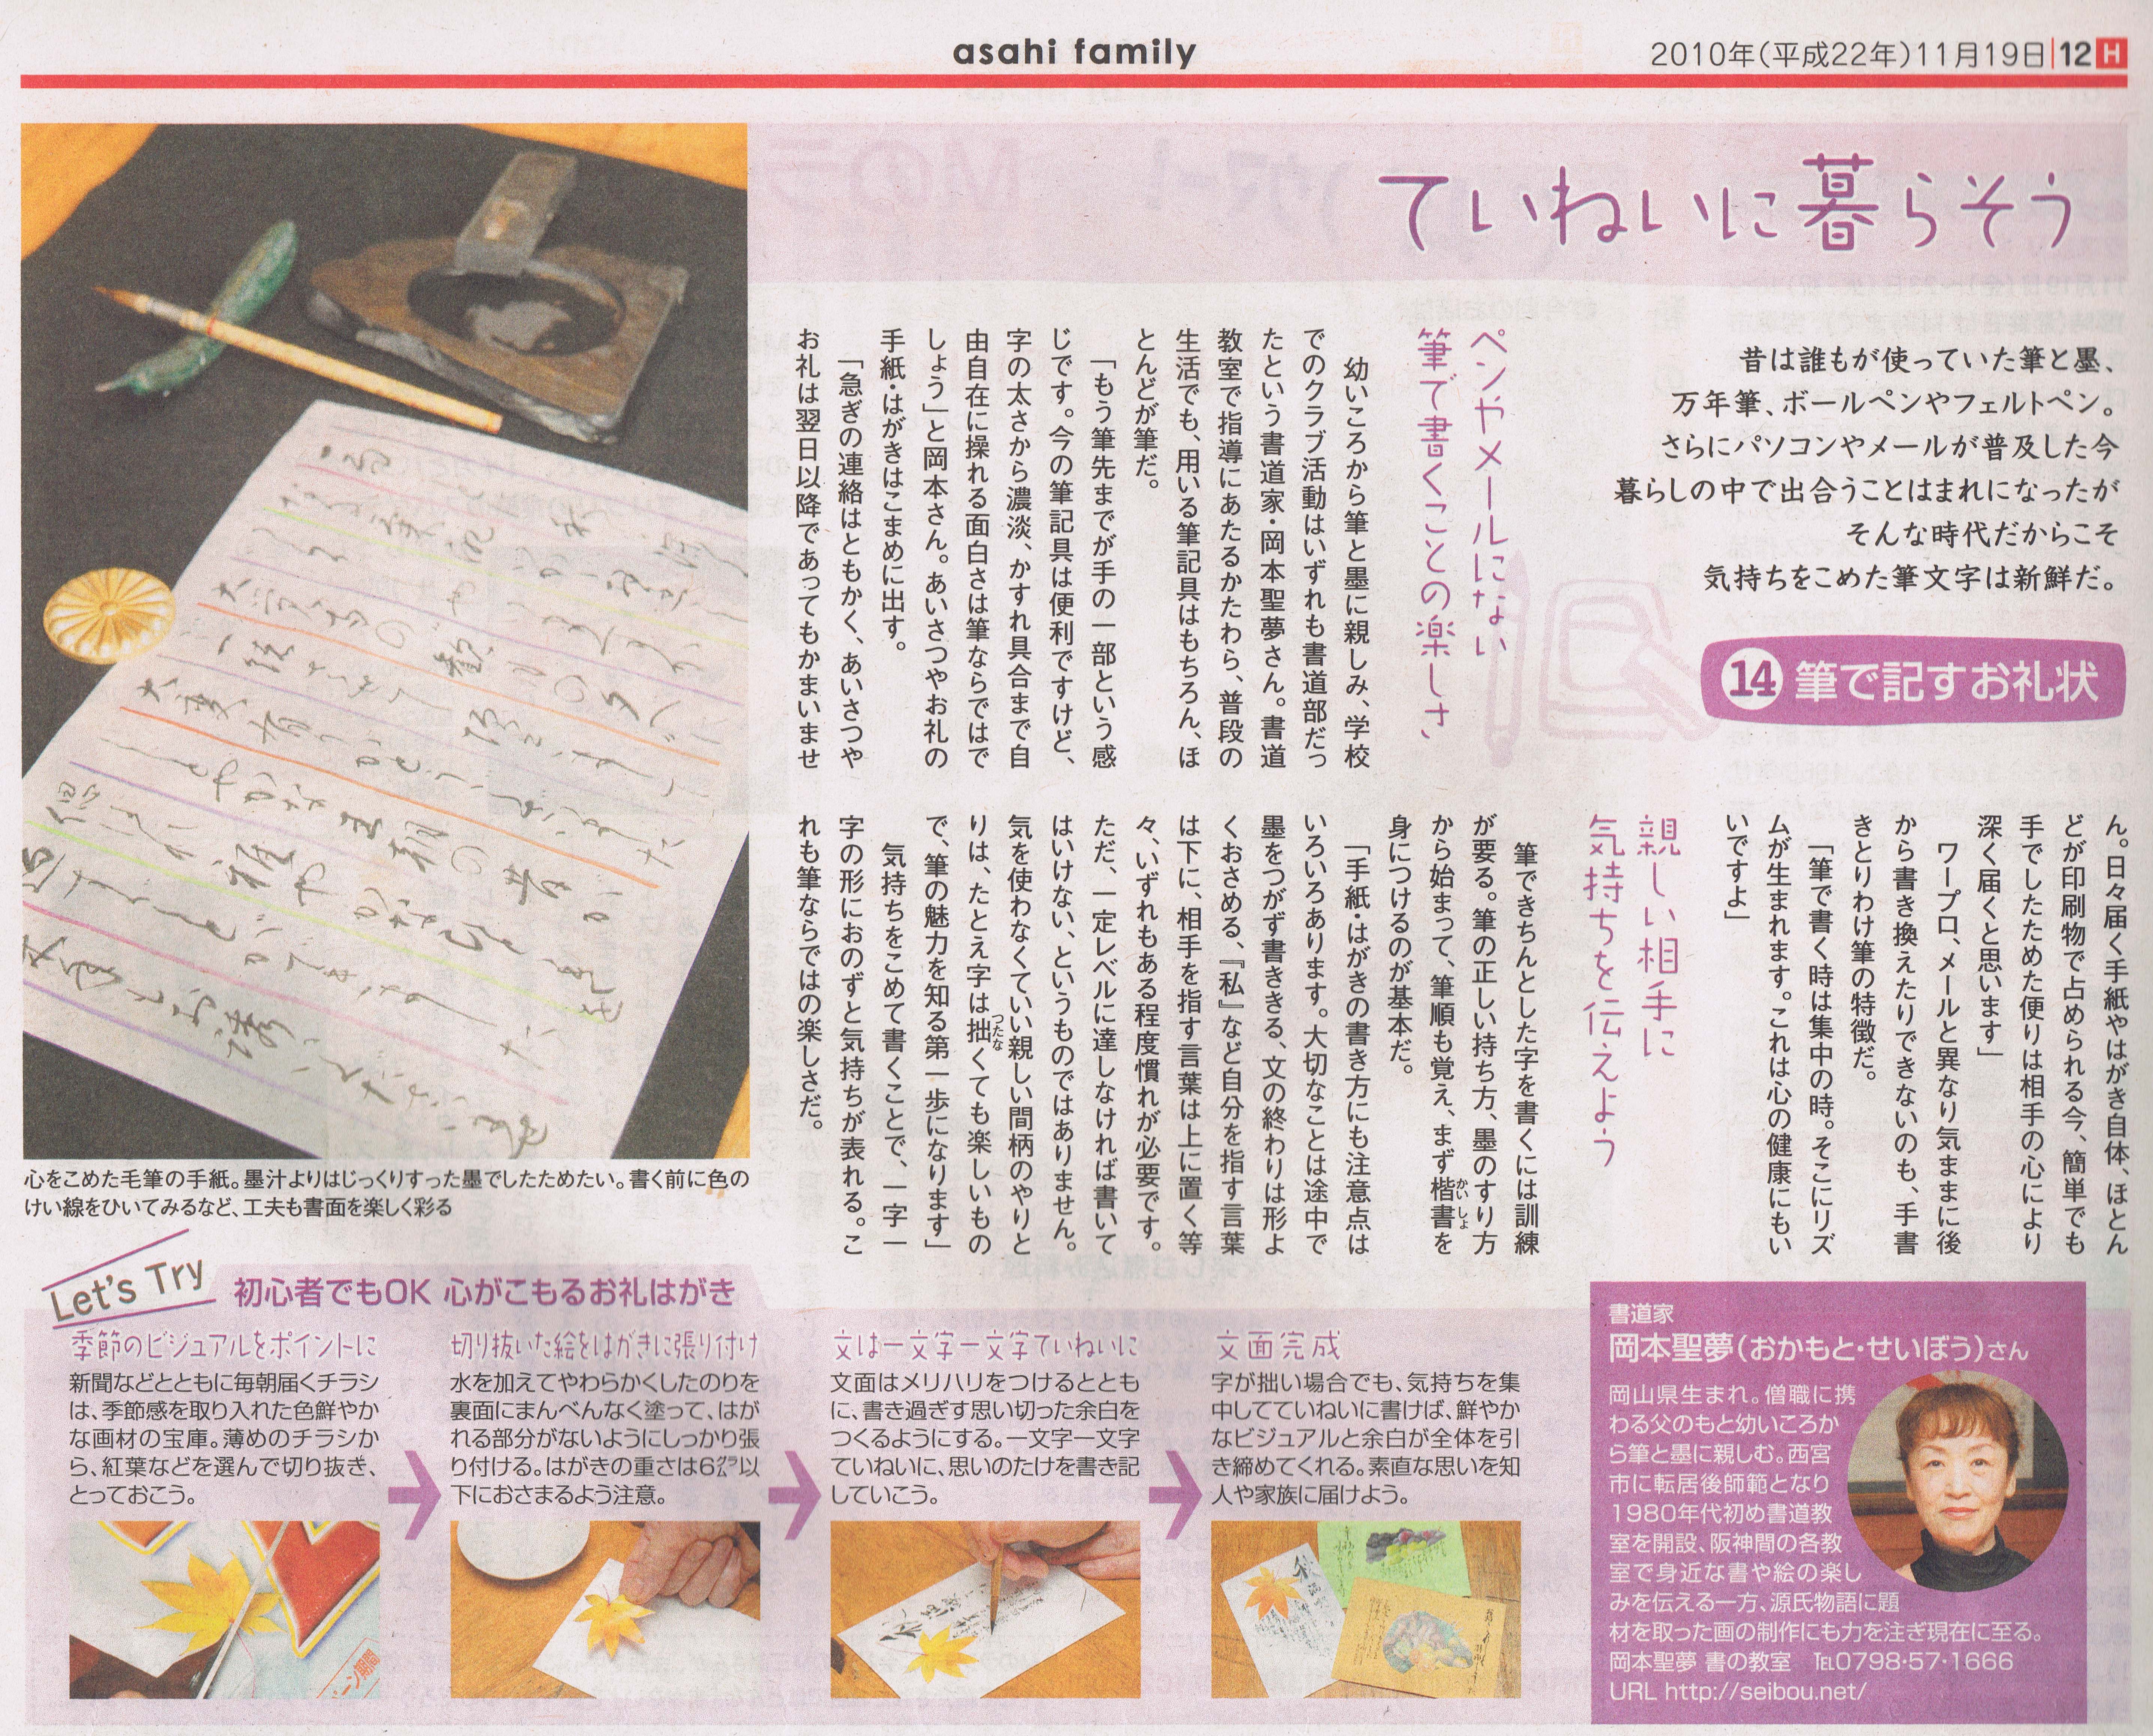 asahi family
2010年(平成22年)11月19日 12 H
ていねいに暮らそう
昔は誰もが使っていた筆と墨、
万年筆、ボールペンやフェルトペン。
さらにパソコンやメールが普及した今
暮らしの中で出合うことはまれになったが
そんな時代だからこそ
気持ちをこめた筆文字は新鮮だ。
14 筆で記すお礼状
ペンやメールにない
筆で書くことの楽しさ
幼いころから筆と墨に親しみ、学校
でのクラブ活動はいずれも書道部だっ
たという書道家・岡本聖夢さん。書道
教室で指導にあたるかたわら、普段の
生活でも、用いる筆記具はもちろん、ほ
とんどが筆だ。
「もう筆先までが手の一部という感
じです。今の筆記具は便利ですけど、
字の太さから濃淡、かすれ具合まで自
由自在に操れる面白さは筆ならではで
しょう」と岡本さん。あいさつやお礼の
手紙・はがきはこまめに出す。
「急ぎの連絡はともかく、あいさつや
お礼は翌日以降であってもかまいませ
ん。日々届く手紙やはがき自体、ほとん
どが印刷物で占められる今、簡単でも
手でしたためた便りは相手の心により
深く届くと思います」
ワープロ、メールと異なり気ままに後
から書き換えたりできないのも、手書
きとりわけ筆の特徴だ。
「筆で書く時は集中の時。そこにリズ
ムが生まれます。これは心の健康にもい
いですよ」
親しい相手に
気持ちを伝えよう
筆できちんとした字を書くには訓練
が要る。筆の正しい持ち方、墨のすり方
から始まって、筆順も覚え、まず楷書(かいしょ)を
身につけるのが基本だ。
「手紙・はがきの書き方にも注意点は
いろいろあります。大切なことは途中で
墨をつがず書ききる、文の終わりは形よ
くおさめる、『私』など自分を指す言葉
は下に、相手を指す言葉は上に置く等
々、いずれもある程度慣れが必要です。
ただ、一定レベルに達しなければ書いて
はいけない、というものではありません。
気を使わなくていい親しい間柄のやりと
りは、たとえ字は拙(つたな)くても楽しいもの
で、筆の魅力を知る第一歩になります」
気持ちをこめて書くことで、一字一
字の形におのずと気持ちが表れる。こ
れも筆ならではの楽しさだ。
心をこめた毛筆の手紙。墨汁よりはじっくりすった墨でしたためたい。書く前に色の
けい線をひいてみるなど、工夫も書面を楽しく彩る
Let's Try
初心者でもOK 心がこもるお礼はがき
季節のビジュアルをポイントに
新聞などとともに毎朝届くチラシ
は、季節感を取り入れた色鮮やか
な画材の宝庫。薄めのチラシか
ら、紅葉などを選んで切り抜き、
とっておこう。
切り抜いた絵をはがきに張り付け
水を加えてやわらかくしたのりを
裏面にまんべんなく塗って、はが
れる部分がないようにしっかり張
り付ける。はがきの重さは6㌘以
下におさまるよう注意。
文は一文字一文字ていねいに
文面はメリハリをつけるととも
に、書き過ぎす思い切った余白を
つくるようにする。一文字一文字
ていねいに、思いのたけを書き記
していこう。
文面完成
字が拙い場合でも、気持ちを集
中してていねいに書けば、鮮やか
なビジュアルと余白が全体を引
き締めてくれる。素直な思いを知
人や家族に届けよう。
書道家
岡本聖夢(おかもと・せいぼう)さん
岡山県生まれ。僧職に携
わる父のもと幼いころか
ら筆と墨に親しむ。西宮
市に転居後師範となり
1980年代初め書道教
室を開設、阪神間の各教
室で身近な書や絵の楽し
みを伝える一方、源氏物語に題
材を取った画の制作にも力を注ぎ現在に至る。
岡本聖夢 書の教室 ℡0798・57・1666
URL http://seibou.net/